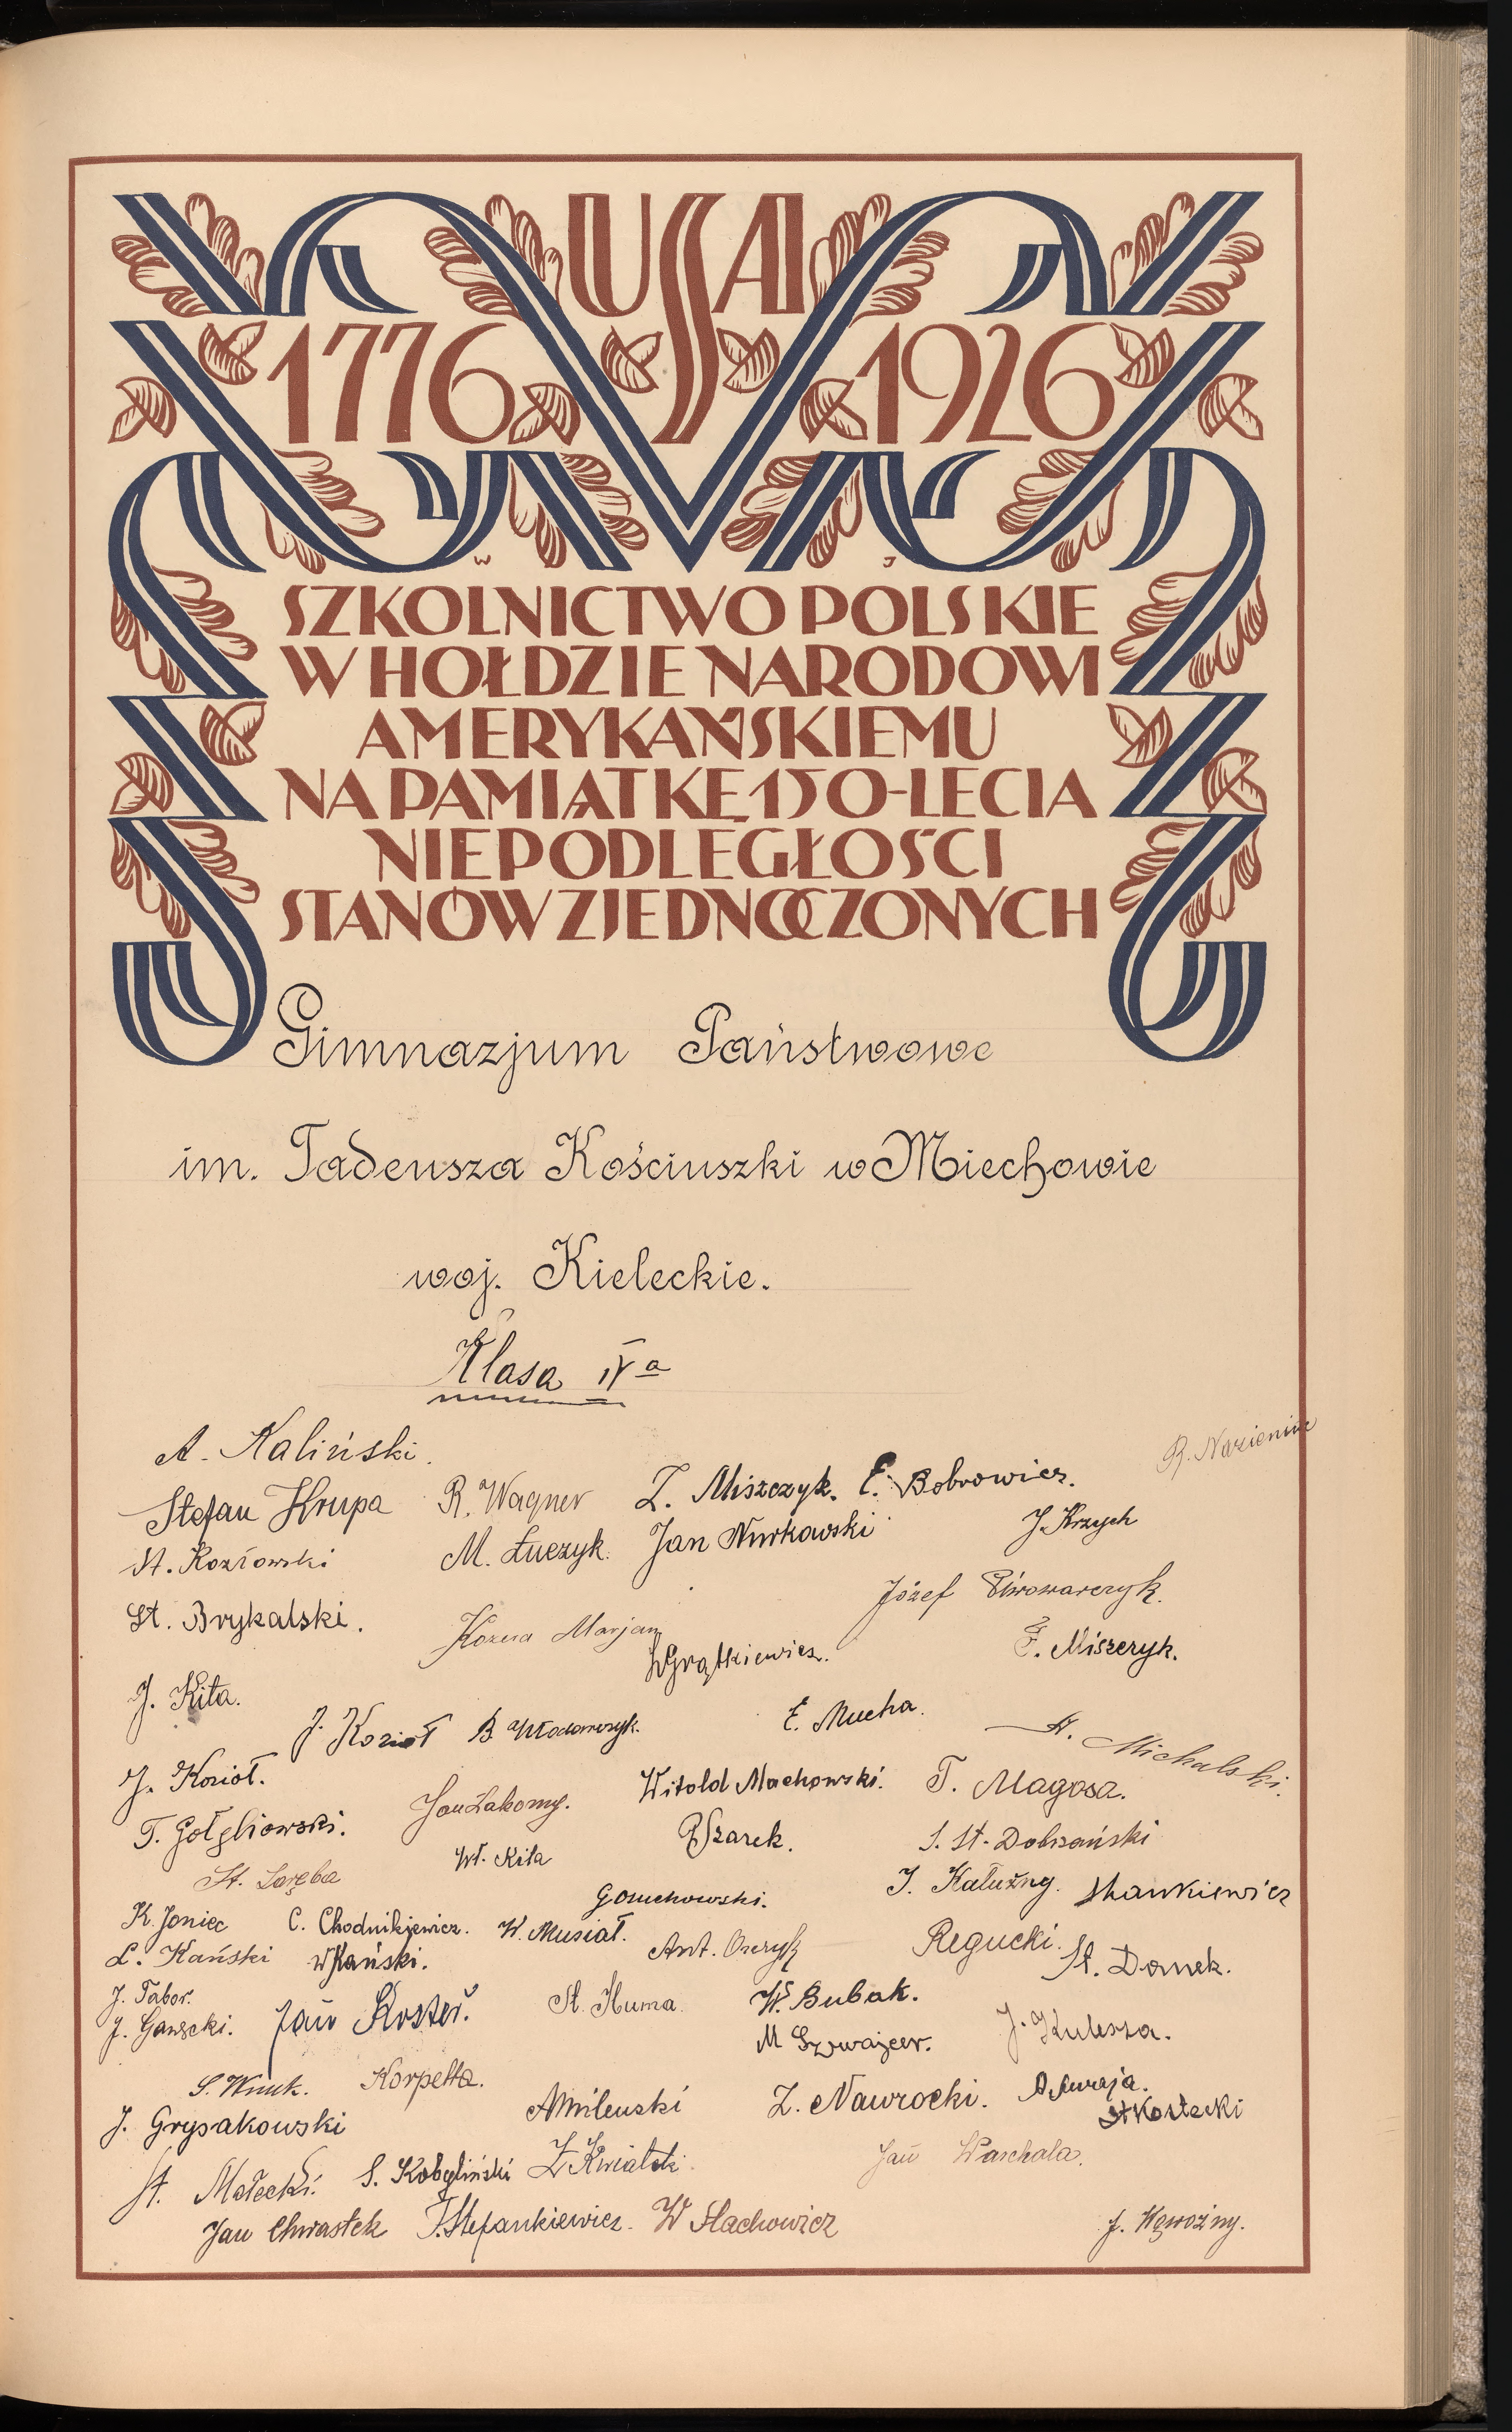 USA
1776 1926
SZKOLNICTWO POLSKIE
W HOŁDZIE NARODOWI
AMERYKAŃSKIEMU
NA PAMIĄTKĘ 150-LECIA
NIEPODLEGŁOŚCI
STANÓW ZJEDNOCZONYCH
Gimnazjum Państwowe
im. Tadeusza Kościuszki w Miechowie
woj. Kieleckie.
Klasa IV a
A. Kaliński.
Stefan Krupa R. Wagner Z. Miszczyk. E. Bobrowicz.
St. Kozłowski M. Łuczyk. Jan Nurkowski J. Krzych
St. Brykalski. Kozera Marjan Józef Piwowarczyk.
W Grątkiewicz. F. Miszczyk.
J. Kita.
J. Kozioł B. Włodarczyk. E. Mucha. St. Michalski.
J. Kozioł. Jan Łakomy. Witold Machowski. T. Magosa.
T. Gołębiowski. Wł. Kita P Szarek. S. St. Dobrzański
St. Zaręba J. Kałużny. Stankiewicz
K. Joniec C. Chodnikiewicz. W. Musiał. Gosuchowski.
L. Kański W Kański. Ant. Osczyk Regucki. St. Domek.
J. Tabor.
J. Gawęcki. Jan Koster. St. Kuma. W. Bubak.
M Szwajcer. J. Kulesza.
S. Wnuk. Korpetta.
J. Grysakowski A Milenski Z. Nawrocki. A. Kuraja.
St Kostecki
St. Małecki. S. Kobyliński Z Kwiatek. Jan Waschala.
Jan Chwastek T. Stefankiewicz. W Stachowicz J. Wąwoźny.